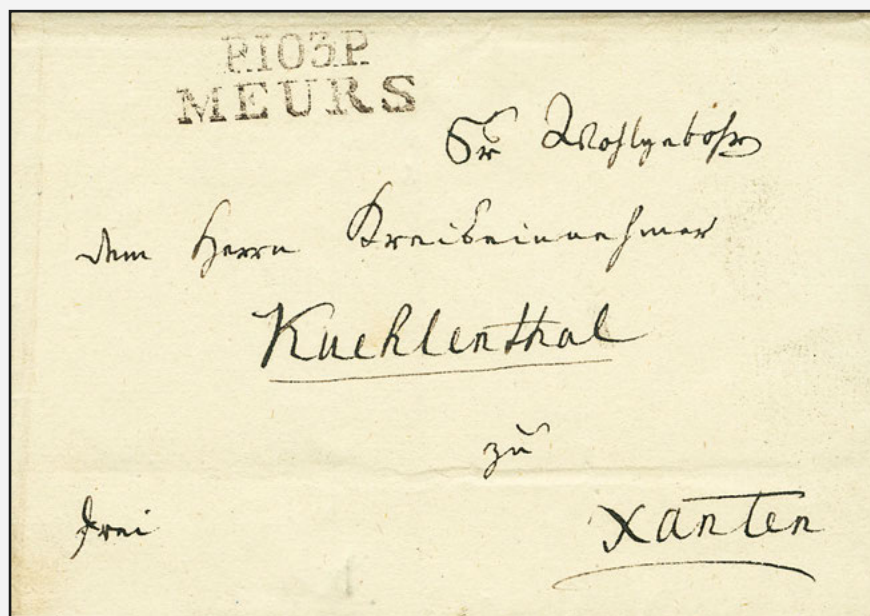 P.103.P.
MEURS
Sr Wohlgebohrn
dem Herrn Kreiseinnehmer
Kuehlenthal
zu
Xanten
frei